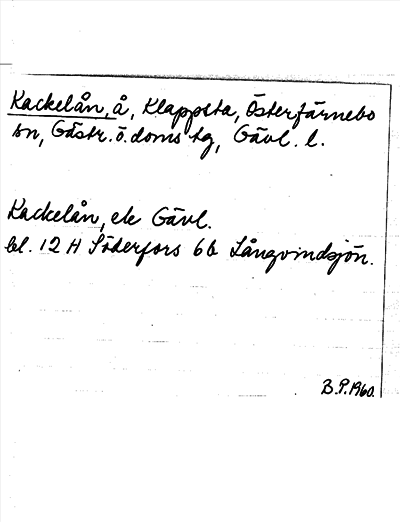 Kackelån, å, Klappsta, Österfärnebo
sn, Gästr. ö. doms tg, Gävl. l.
Kackelån, ek Gävl.
bl. 12 H Söderfors 6b Långvindsjön.
B.P. 1960.